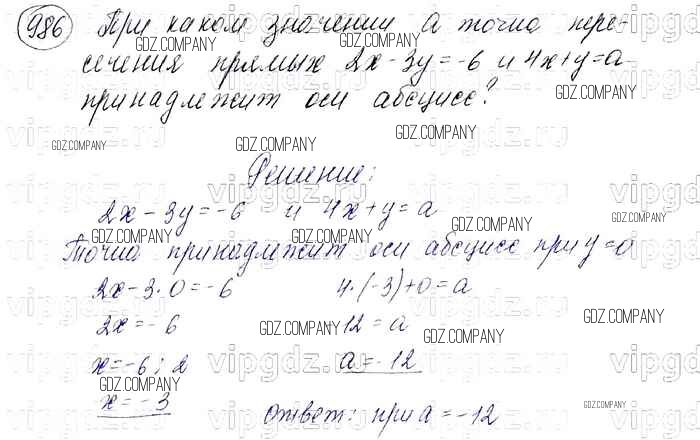 986 При каком значении а точка пере-
сечения прямых 2x - 3y = -6 и 4x + y = a
принадлежит оси абсцисс?
Решение:
2x - 3y = -6 и 4x + y = a
Точка принадлежит оси абсцисс при y = 0
2x - 3 · 0 = -6 4 · (-3) + 0 = a
2x = -6 -12 = a
x = -6 : 2 a = -12
x = -3 Ответ: при a = -12
GDZ.COMPANY
vipgdz.ru